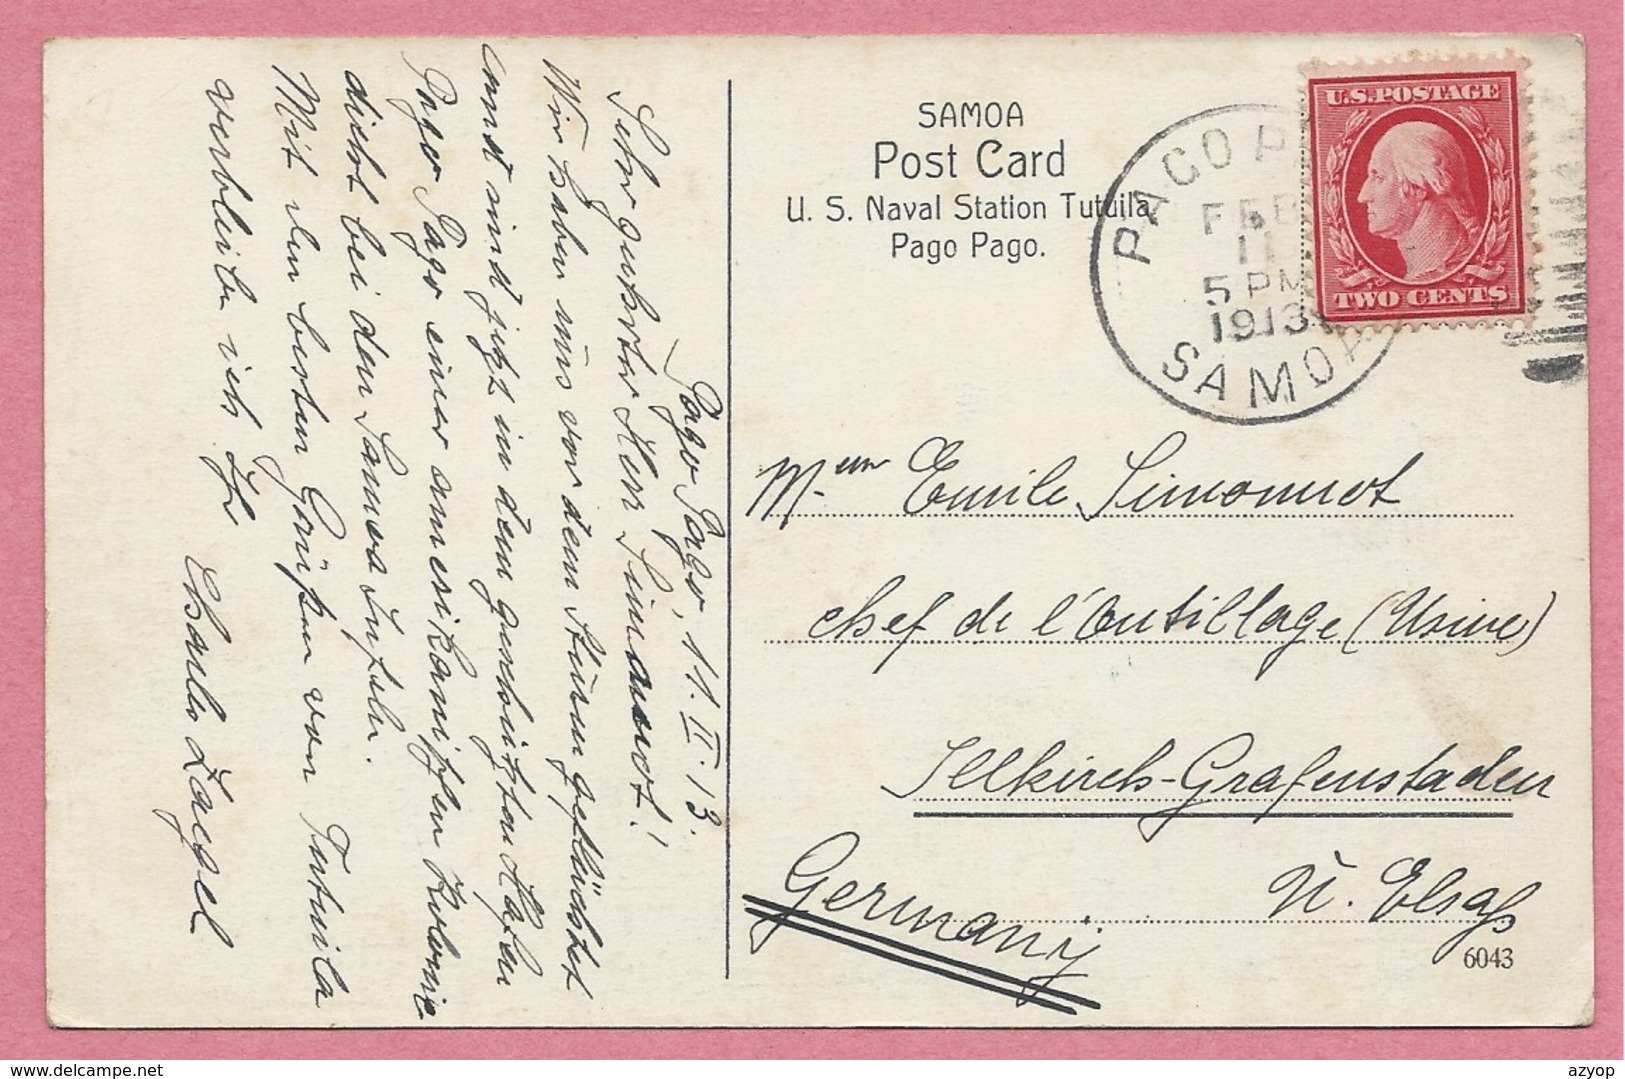 SAMOA
Post Card
U. S. Naval Station Tutuila
Pago Pago.
U.S. POSTAGE
TWO CENTS
PAGO P
FEB
11
5 PM
1913
SAMOA
Pago Pago, 11. II. 13.
Sehr geehrter Herr Simonnot!
Wir haben uns vor dem Sturm geflüchtet
und sind jetzt in dem geschützten Hafen
Pago Pago einer amerikanischen Kolonie
dicht bei den Samoa Inseln.
Mit den besten Grüßen von Tutuila
verbleibe ich Ihr
Charles
Emile Simonnot
chef de l'Outillage (Usine)
Illkirch-Grafenstaden
U. Elsaß
Germany
6043
delcampe.net
azyop